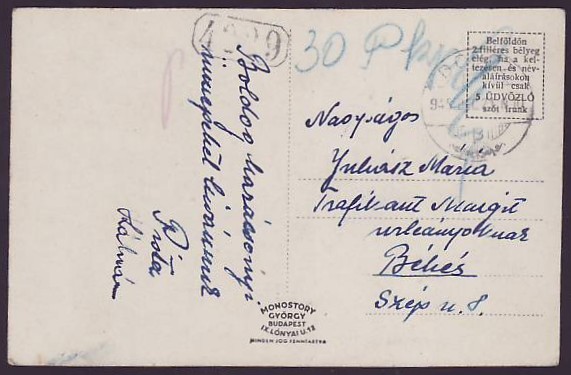 4229
30 P
Belföldön
2 filléres bélyeg
elég, ha a kel-
tezésen és név-
aláírásokon
kívül csak
5 ÜDVÖZLŐ
szót írunk
Boldog karácsonyi
ünnepeket kívánunk
Róza
Kálmán
Nagyságos
Juhász Mária
Trafikant Margit
urleányoknak
Békés
Szép u. 8.
MONOSTORY
GYÖRGY
BUDAPEST
IX. LÓNYAI U. 18
MINDEN JOG FENNTARTVA